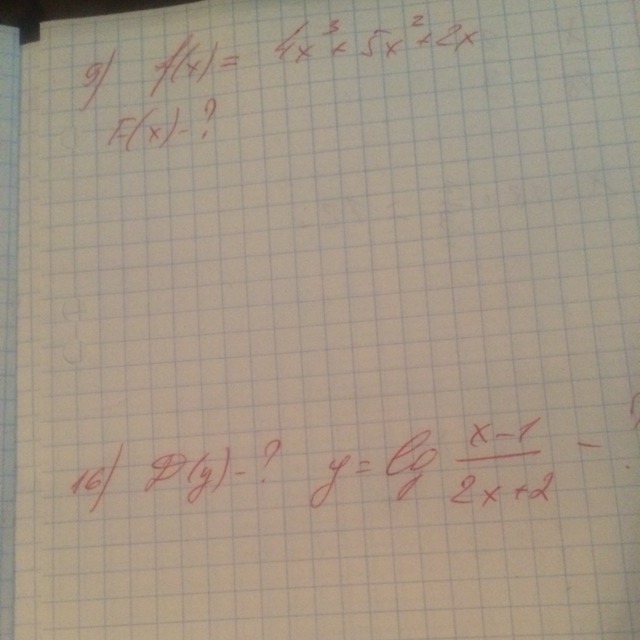 9) f(x) = 4x³ + 5x² + 2x
F(x) - ?
16) D(y) - ? y = lg (x-1)/(2x+2) -